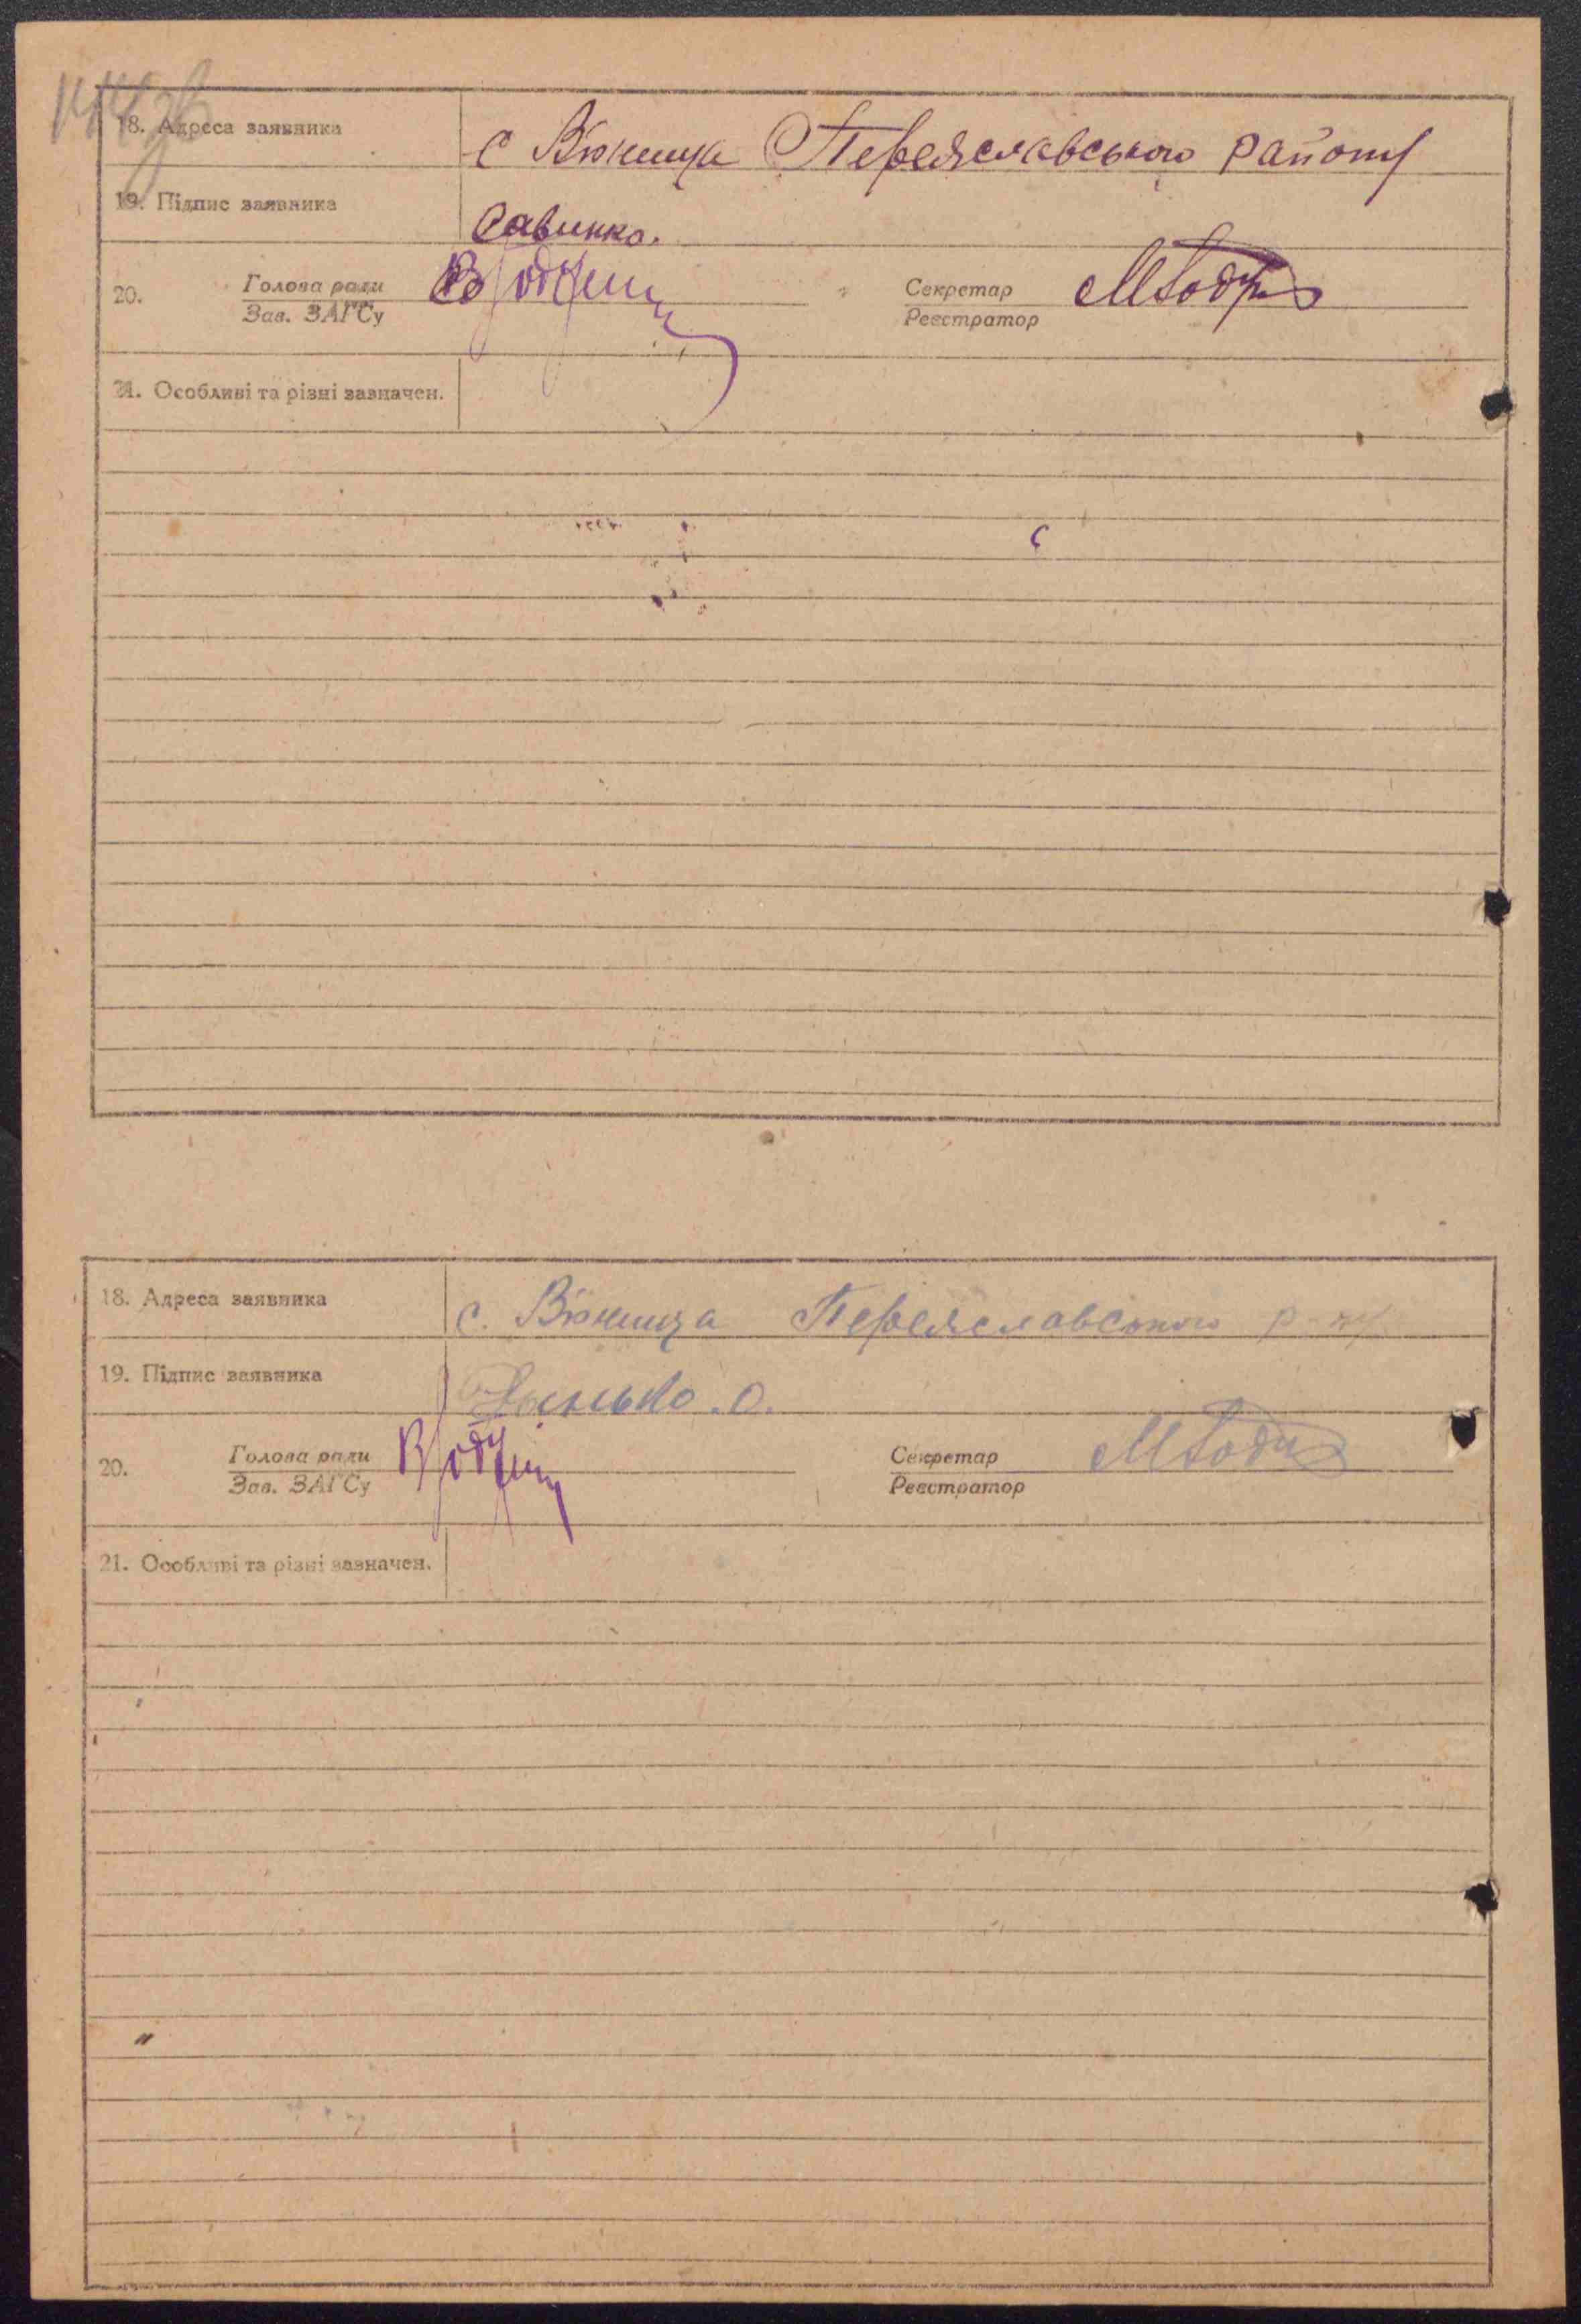 18. Адреса заявника
с Вюнища Переяславського району
19. Підпис заявника
Савинко.
20. Голова ради Секретар
Зав. ЗАГСу Реєстратор
21. Особливі та різні зазначен.
18. Адреса заявника
с. Вюнища Переяславського р-ну
19. Підпис заявника
О.
20. Голова ради Секретар
Зав. ЗАГСу Реєстратор
21. Особливі та різні зазначен.